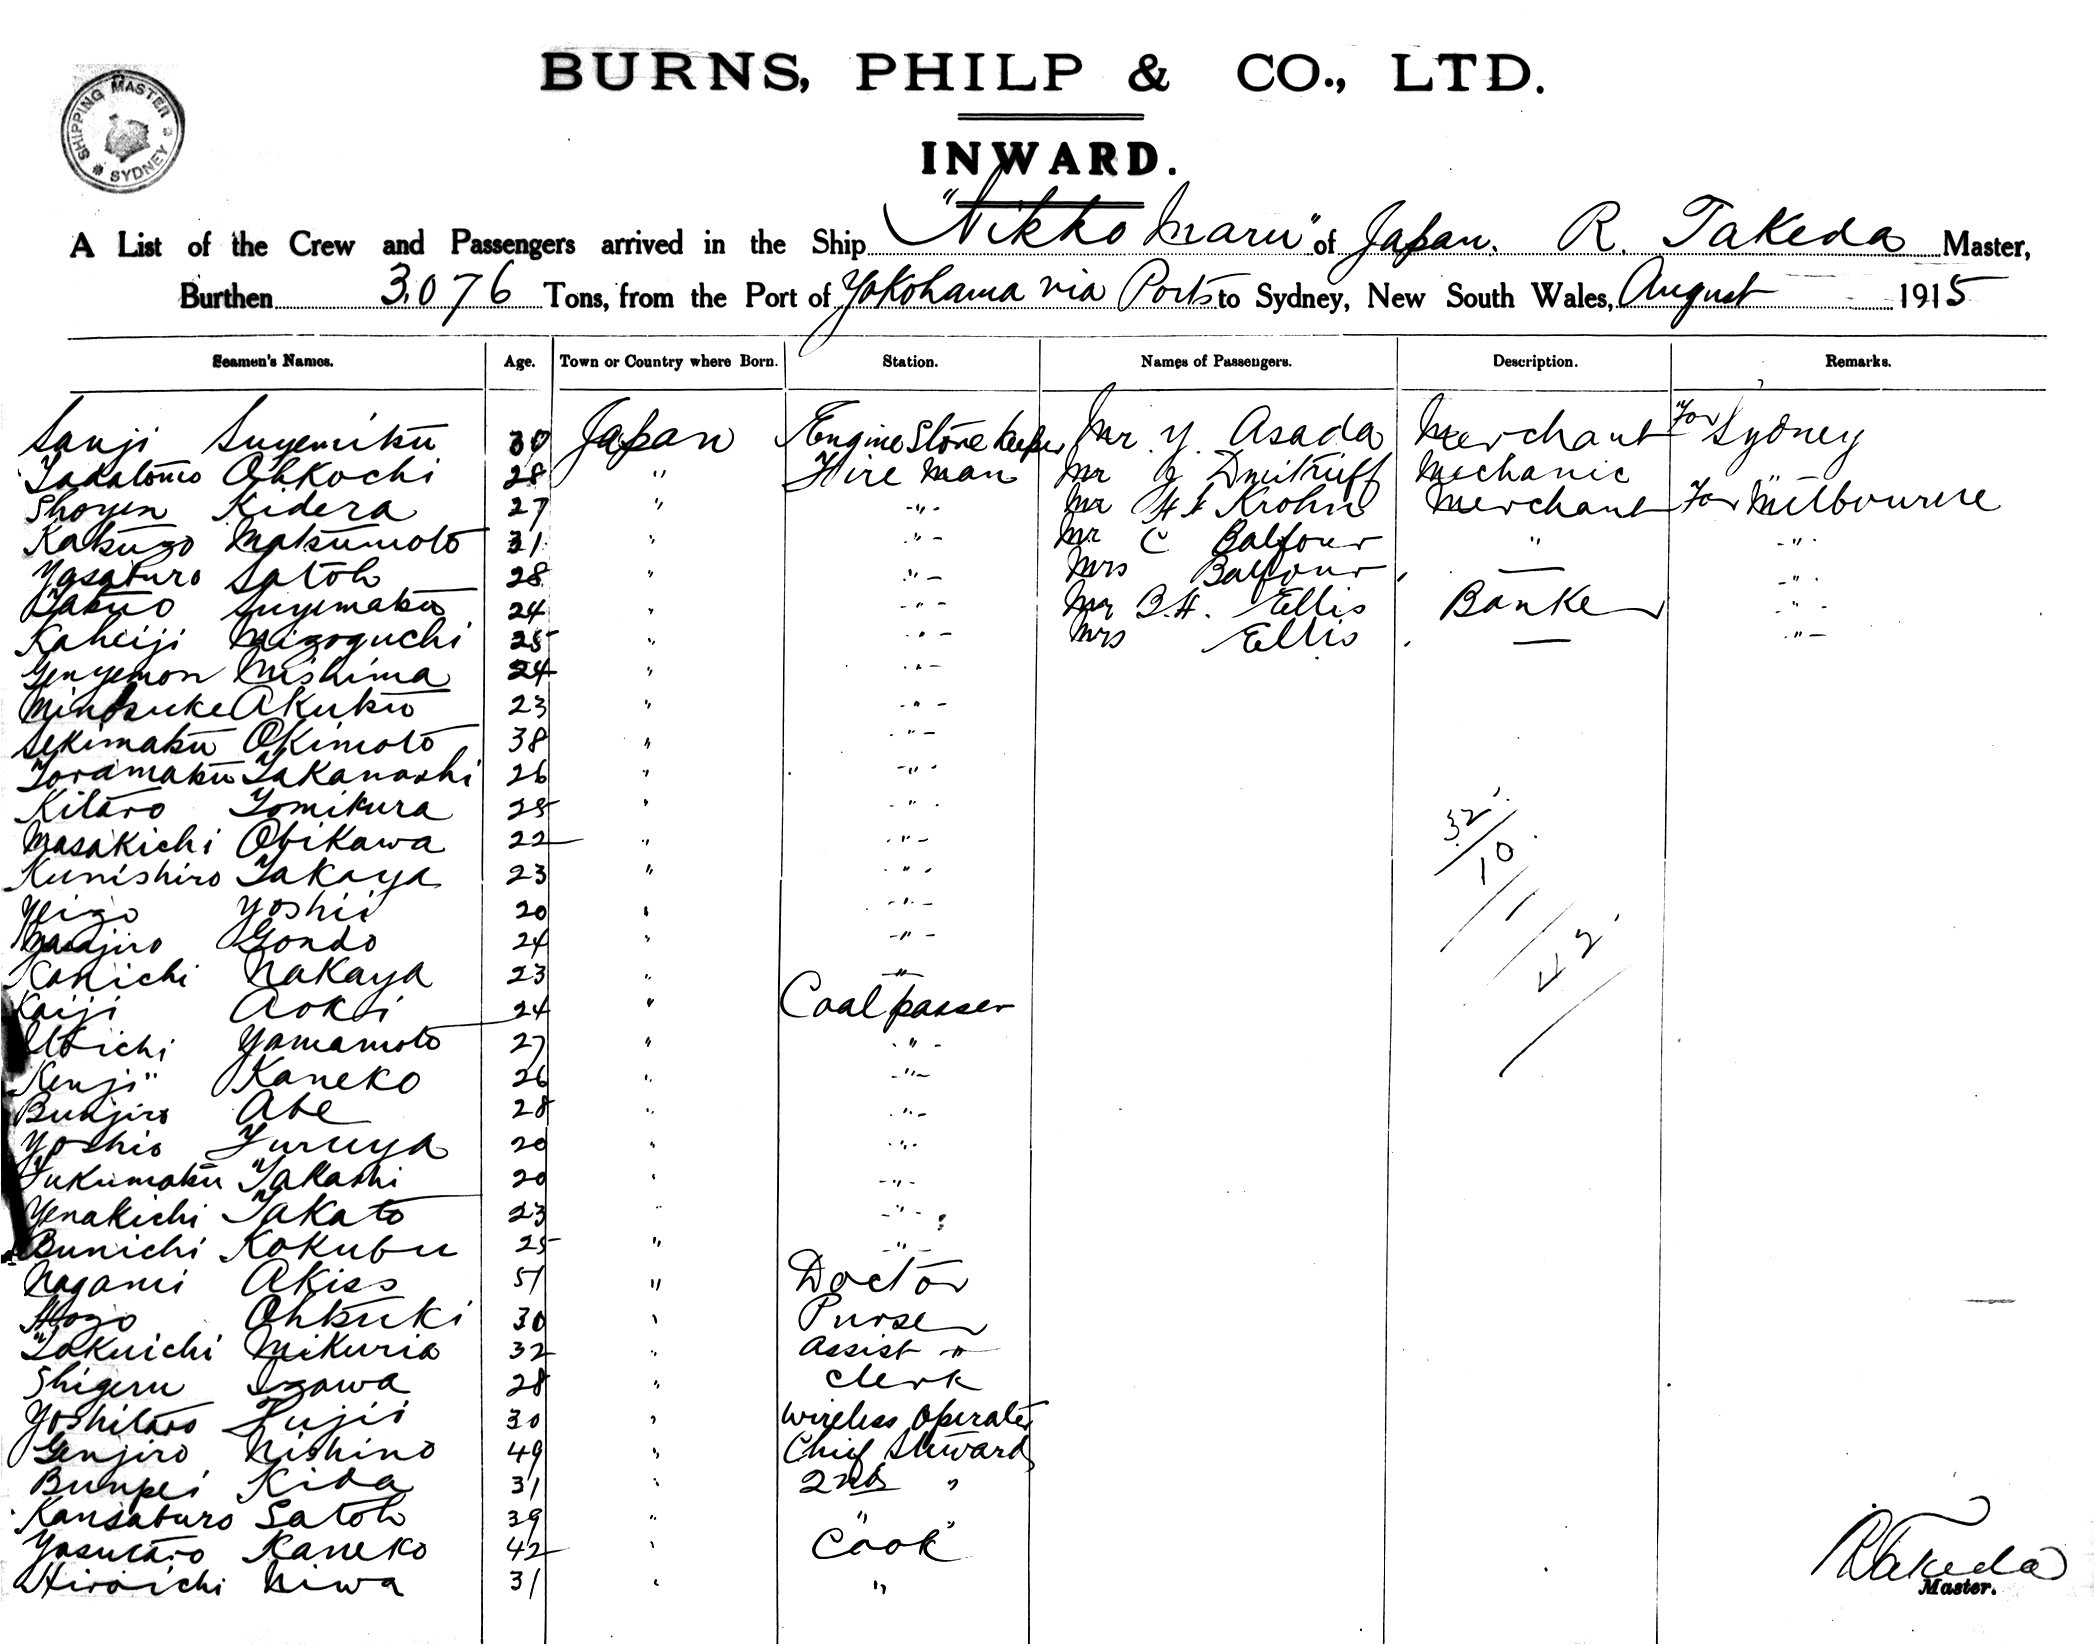 BURNS, PHILP & CO., LTD.
INWARD.
SHIPPING MASTER SYDNEY
A List of the Crew and Passengers arrived in the Ship "Nikko Maru" of Japan. R. Takeda Master,
Burthen 3,076 Tons, from the Port of Yokohama via Ports to Sydney, New South Wales, August 1915
Seamen's Names. Age. Town or Country where Born. Station. Names of Passengers. Description. Remarks.
Sanji Suyemitsu 30 Japan Engine Store Keeper Mr. Y. Asada Merchant For Sydney
Tadatomo Ohkochi 28 " Fire man Mr Dmitrieff Mechanic "
Shoyen Kidera 27 " -"- Mr Krohn Merchant For Melbourne
Katsuzo Matsumoto 31 " -"- Mr C Balfour " -"-
Yasaburo Satoh 28 " -"- Mrs Balfour — -"-
Tatsuo Suyematsu 24 " -"- Mr B.H. Ellis Banker -"-
Kaheiji Mizoguchi 25 " -"- Mrs Ellis — -"-
Genyemon Nishima 24 " -"-
Minosuke Akutsu 23 " -"-
Sekimatsu Okimoto 38 " -"-
Toramatsu Takanashi 26 " -"-
Kitaro Tomikura 25 " -"-
Masakichi Obikawa 22 " -"-
Kunishiro Takaya 23 " -"-
Yeizo Yoshii 20 " -"-
Masajiro Gondo 24 " -"-
Kakichi Nakaya 23 " -"-
Kaiji Aoki 24 " Coal passer
Yamamoto 27 " -"-
Kenji Kaneko 26 " -"-
Bunjiro Abe 28 " -"-
Yoshio Furuya 20 " -"-
Fukumatsu Takashi 20 " -"-
Yenakichi Takato 23 " -"-
Bunichi Kokubu 25 " -"-
Nagami Akiss 51 " Doctor
Ohtsuki 30 " Purser
Takuichi Mikuria 32 " Assist "
Shigeru Izawa 28 " Clerk
Yoshitaro Fujii 30 " Wireless Operater
Genjiro Nishino 49 " Chief Steward
Bunpei Kida 31 " 2nd "
Kansaburo Satoh 39 " " "
Yasutaro Kaneko 42 " Cook
Hiroichi Niwa 31 " "
32
10
42
R Takeda
Master.